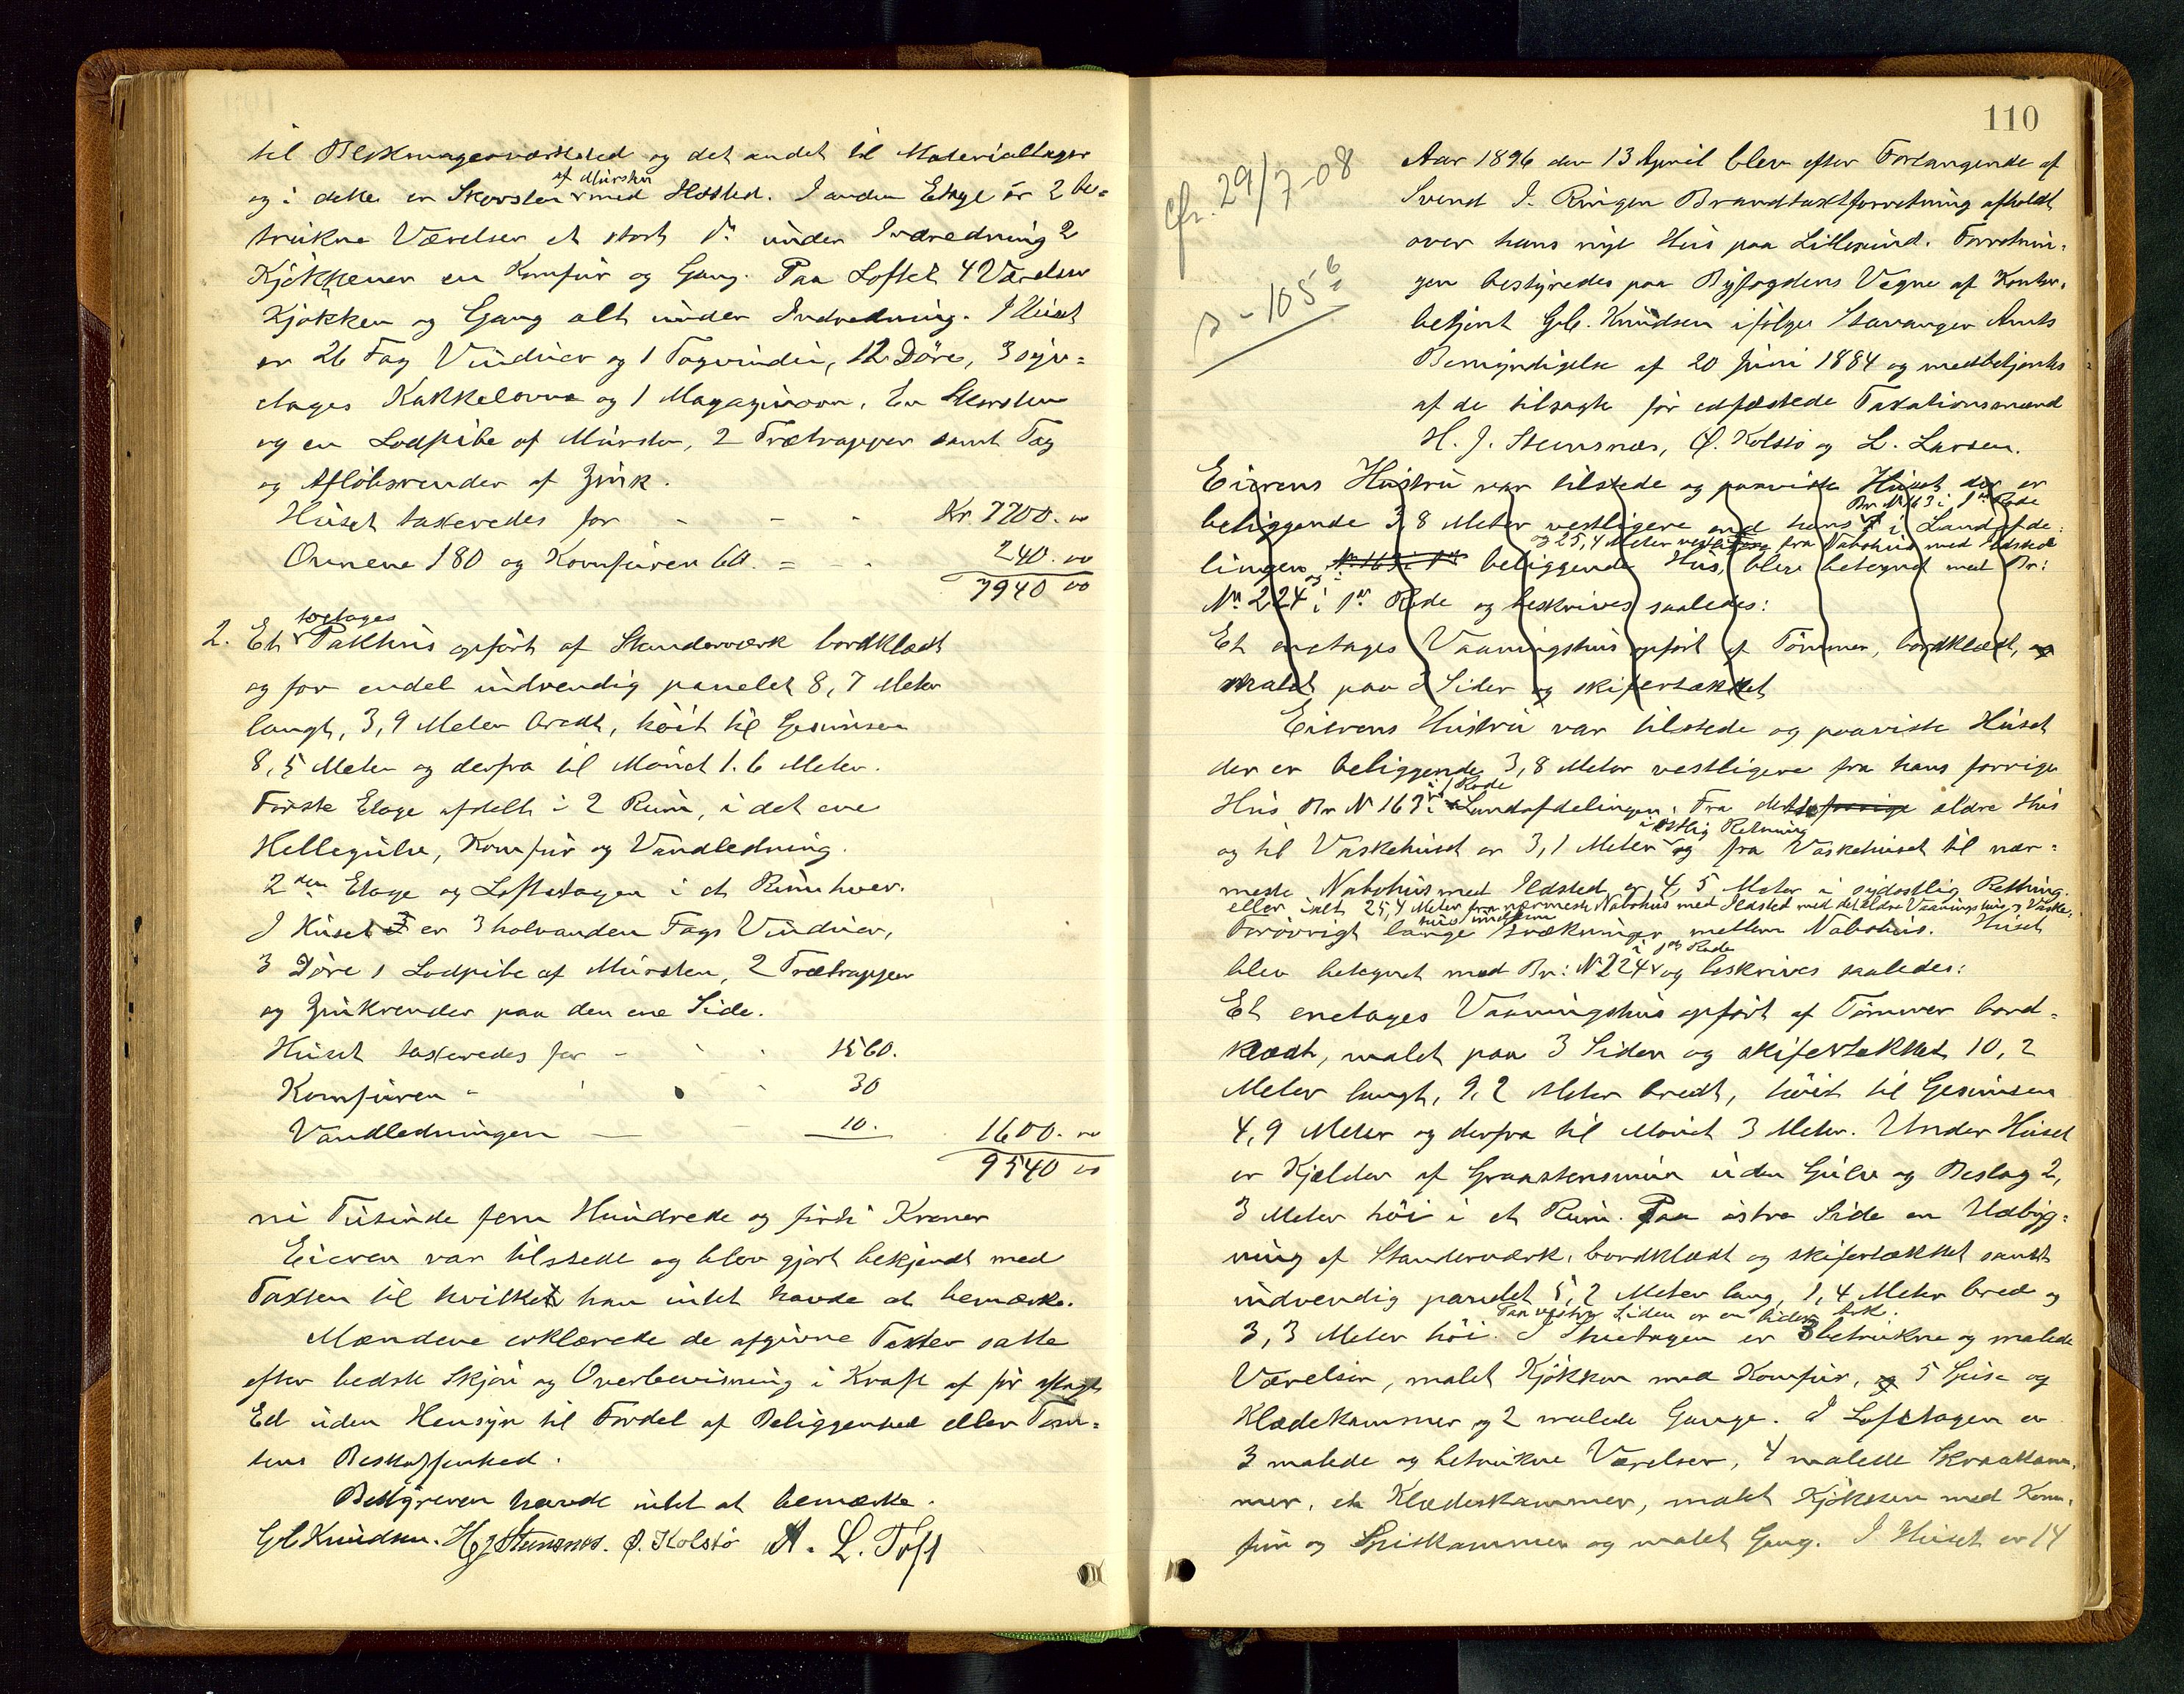 til Blikmagerværksted og det andet til Materiallager
og i dette er Skorsten af Mursten med Ildsted. I anden Etage er 2 be=
trukne Værelser et stort do under Indredning 2
Kjøkkener en Komfur og Gang. Paa Loftet 4 Værelser
Kjøkken og Gang alt under Indredning. I Huset
er 26 Fag Vinduer og 1 Tagvindu, 12 Døre, 3
etages Kakkelovne og 1 Magazinovn, en Skorsten
og en Lodpibe af Mursten, 2 Trætrapper samt Tag
og Afløbsrender af Zink.
Huset taxeredes for - - - Kr. 7700. 00
Ovnene 180 og Komfuren 60. = - - 240. 00
7940 00
2. Et toetages Pakhus opført af Standerværk bordklædt
og for endel indvendig panelet 8,7 Meter
langt, 3,9 Meter bredt, høit til Gesimsen
8,5 Meter og derfra til Mønet 1.6 Meter.
Første Etage afdelt i 2 Rum, i det ene
Hellegulv, Komfur og Vandledning.
2den Etage og Loftetagen i et Rum hver.
I Huset er 3 halvanden Fags Vinduer,
3 Døre 1 Lodpibe af Mursten, 2 Trætrapper
og Zinkrender paa den ene Side.
Huset taxeredes for - - - 1560.
Komfuren - - - 30
Vandledningen — 10. 1600. 00
9540 00
ni Tusinde fem Hundrede og firti Kroner
Eieren var tilstede og blev gjort bekjendt med
Taxten til hvilket han intet havde at bemærke.
Mændene erklærede de afgivne Taxter satte
efter bedste Skjøn og Overbevisning i Kraft af før aflagt
Ed uden Hensyn til Fordel af Beliggenhed eller Tom=
tens Beskaffenhed.
Bestyreren havde intet at bemærke.
Gb Knudsen. H J Stensnes. O. Kolstø A. L. Toft
110
cfr. 29/7-08
s - 105 b
Aar 1896 den 13 April blev efter Forlangende af
Svend I. Ringen Brandtaxtforretning afholdt
over hans nye Hus paa Lillesund. Forretnin=
gen bestyredes paa Byfogdens Vegne af Kontor=
betjent Gb. Knudsen ifølge Stavanger Amts
Bemyndigelse af 20 Juni 1884 og medbetjentes
af de tilsagte før edfæstede Taxationsmænd
H. J. Stensnæs, O. Kolstø og L. Larsen.
Eierens Hustru var tilstede og paaviste Huset der er
Br. No 163 i 1ste Rode
beliggende 3,8 Meter vestligere end hans i Landafde=
og 25,4 Meter vestligere fra Nabohus med Ildsted
lingen No 163 i 1ste beliggende Hus, blev betegnet med Br:
No 224 i 1ste Rode og beskrives saaledes:
Et enetages Vaaningshus opført af Tømmer, bordklædt, og
malet paa 3 Sider og skifertækket
Eierens Hustru var tilstede og paaviste Huset
der er beliggende 3,8 Meter vestligere fra hans forrige
i 1 Rode
Hus Br No 163 i Landafdelingen. Fra dette forrige ældre Hus
i østlig Retning
og til Vaskehuset er 3,1 Meter og fra Vaskehuset til nær=
meste Nabohus med Ildsted er 4,5 Meter i sydostlig Retning.
eller ialt 25,4 Meter fra nærmeste Nabohus med Ildsted med det ældre Vaaningshus og Vaske=
hus imellem
Forøvrigt lange Strækninger mellem Nabohus. Huset
i 1ste Rode
blev betegnet med Br: No 224 og beskrives saaledes:
Et enetages Vaaningshus opført af Tømmer bord=
klædt, malet paa 3 Sider og skifertækket 10,2
Meter langt, 9,2 Meter bredt, høit til Gesimsen
4,9 Meter og derfra til Mønet 3 Meter. Under Huset
er Kjælder af Graastensmur uden Gulv og Beslag 2,
3 Meter høi i et Rum. Paa østre Side en Udbyg=
ning af Standerværk, bordklædt og skifertækket samt
indvendig panelet 5,2 Meter lang, 1,4 Meter bred og
Paa vestre Siden er en liden Ark.
3,3 Meter høi. I Stuetagen er 3 betrukne og malede
Værelser, malet Kjøkken med Komfur, og 5 Spise og
Klædekammer og 2 malede Gange. I Loftetagen er
3 malede og betrukne Værelser, 4 malede Skraakam=
mer, et Klædeskammer, malet Kjøkken med Kom=
fur og Spiskammer og malet Gang. I Huset er 14